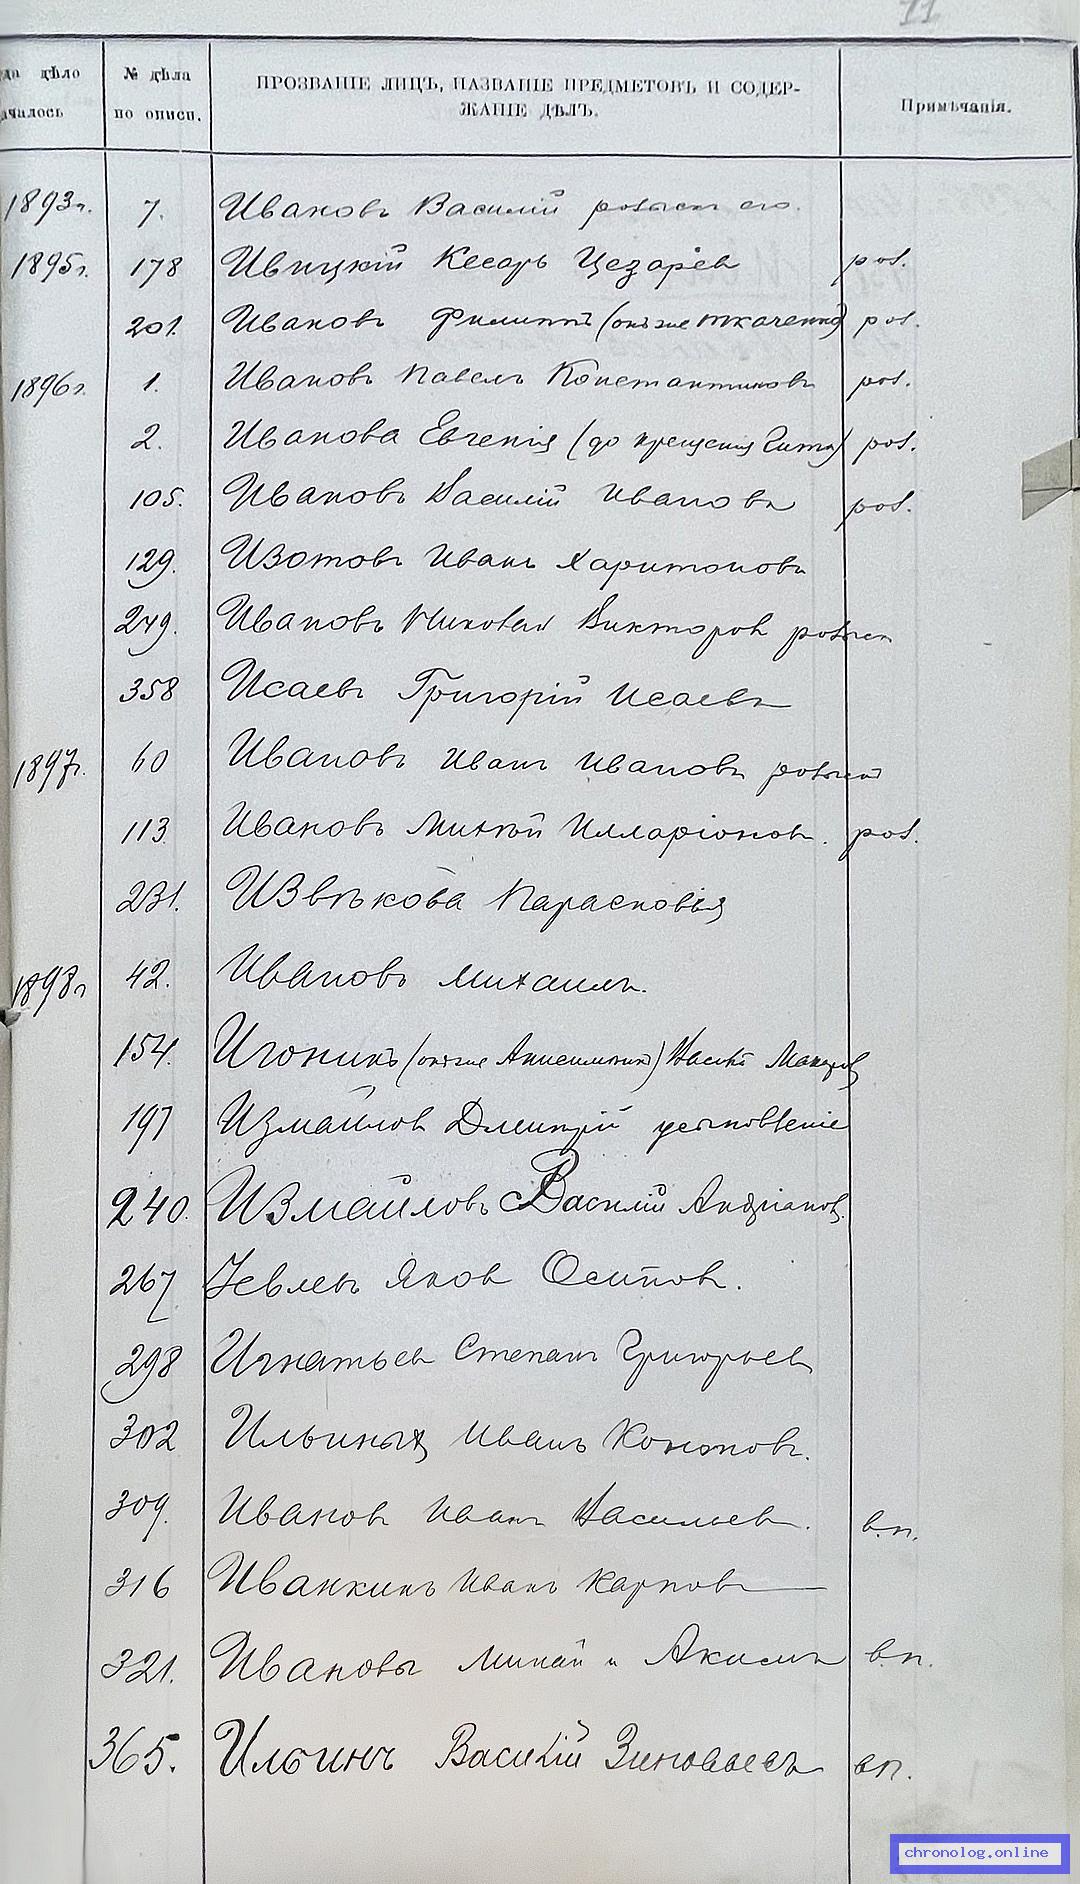 71
дѣло № дѣла ПРОЗВАНІЕ ЛИЦЪ, НАЗВАНІЕ ПРЕДМЕТОВЪ И СОДЕР-
началось по описи. ЖАНІЕ ДѢЛЪ. Примѣчанія.
1893г. 7. Ивановъ Василій розыск его.
1895г. 178 Ивицкій Кесарь Цезарев роз.
201. Ивановъ Филиппъ (онъ же Ткаченко) роз.
1896г. 1. Ивановъ Павелъ Константиновъ роз.
2. Иванова Евгенія (до крещенія Гитля) роз.
105. Ивановъ Василій Ивановъ роз.
129. Изотовъ Иванъ Харитоновъ
249. Ивановъ Николай Викторов розыск
358 Исаевъ Григорій Исаевъ
1897г. 60 Ивановъ Иванъ Ивановъ розыск
113. Ивановъ Михей Илларіонов. роз.
231. Извѣкова Парасковья
1898г 42. Ивановъ Михаилъ.
154. Игонинъ (онъ же Анисимовъ) Макаров
197 Измаилов Дмитрій усыновленіе
240. Измайловъ Василій Андріанов.
267 Іевлевъ Яков Осипов.
298 Игнатьев Степанъ Григорьев
302 Ильиных Иванъ Кононов.
309. Иванов Иванъ Васильев. в.п.
316 Иванкинъ Иванъ Карпов
321. Ивановы Минай и Акисим в.п.
365. Ильинъ Василій Зиновьевъ вп.
chronolog.online